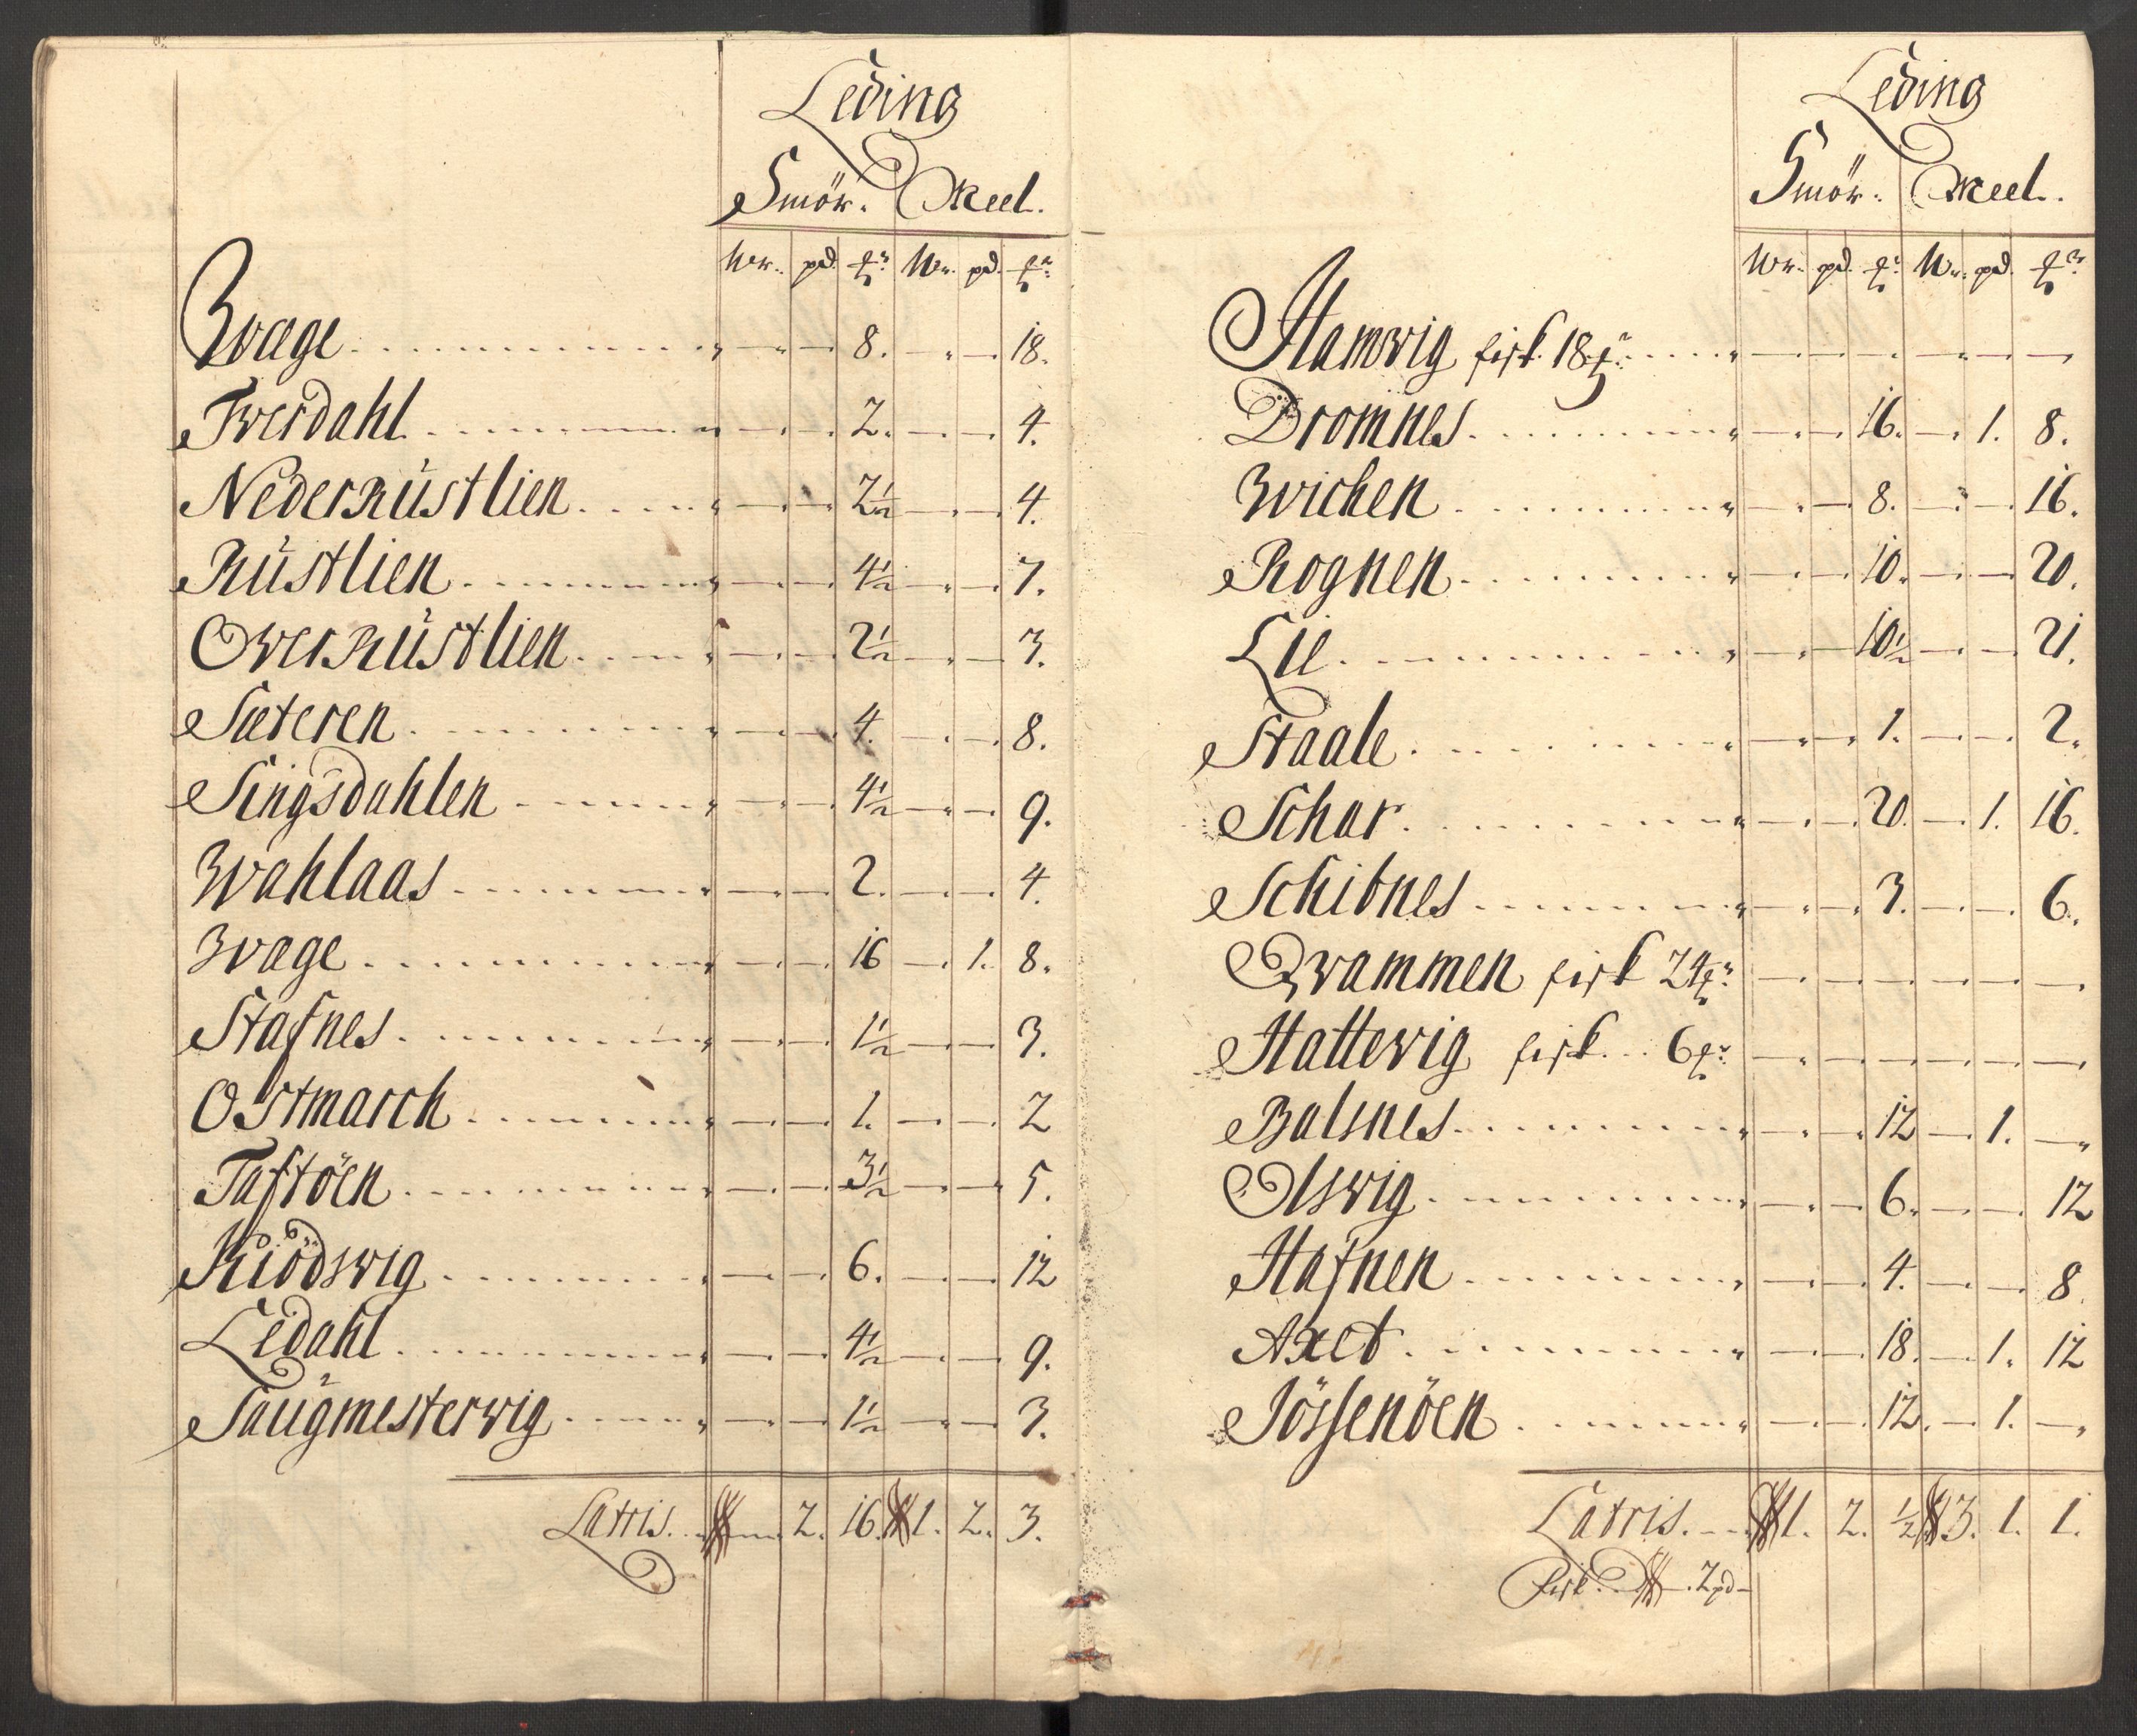 Leding
Smör. Meel.
Wr. pd. ℔r. Wr. pd. ℔r.
Wæge 8. 18.
Twerdahl 2. 4.
Nederrüstlien 2½ 4.
Rüstlien 4½ 7.
Overrüstlien 2½ 3.
Sæteren 4. 8.
Singsdahlen 4½ 9.
Wahlaas 2. 4.
Wæge 16 1. 8.
Stafnes 1½ 3.
Ostmarch 1. 2
Taftöen 3½ 5.
Kiödswig 6. 12
Leidahl 4½ 9.
Saugmesterwig 1½ 3.
Latris. 2. 16. 1. 2. 3.
Leding
Smör. Meel.
Wr. pd. ℔r. Wr. pd. ℔r.
Hamwig fisk 18 ℔r
Dromnes 16. 1. 8.
Wichen 8. 16.
Rognen 10. 20.
Lie 10½ 21.
Staale 1. 2.
Schar 20. 1. 16.
Schibnes 3. 6.
Qwammen fisk 24 ℔r
Hattewig fisk 6 ℔r
Balsnes 12 1.
Olswig 6. 12
Hafnen 4. 8
Axet 18. 1. 12
Jössenöen 12. 1.
Latris. 1. 2. ½ 3. 1. 1.
Fisk. 2 pd